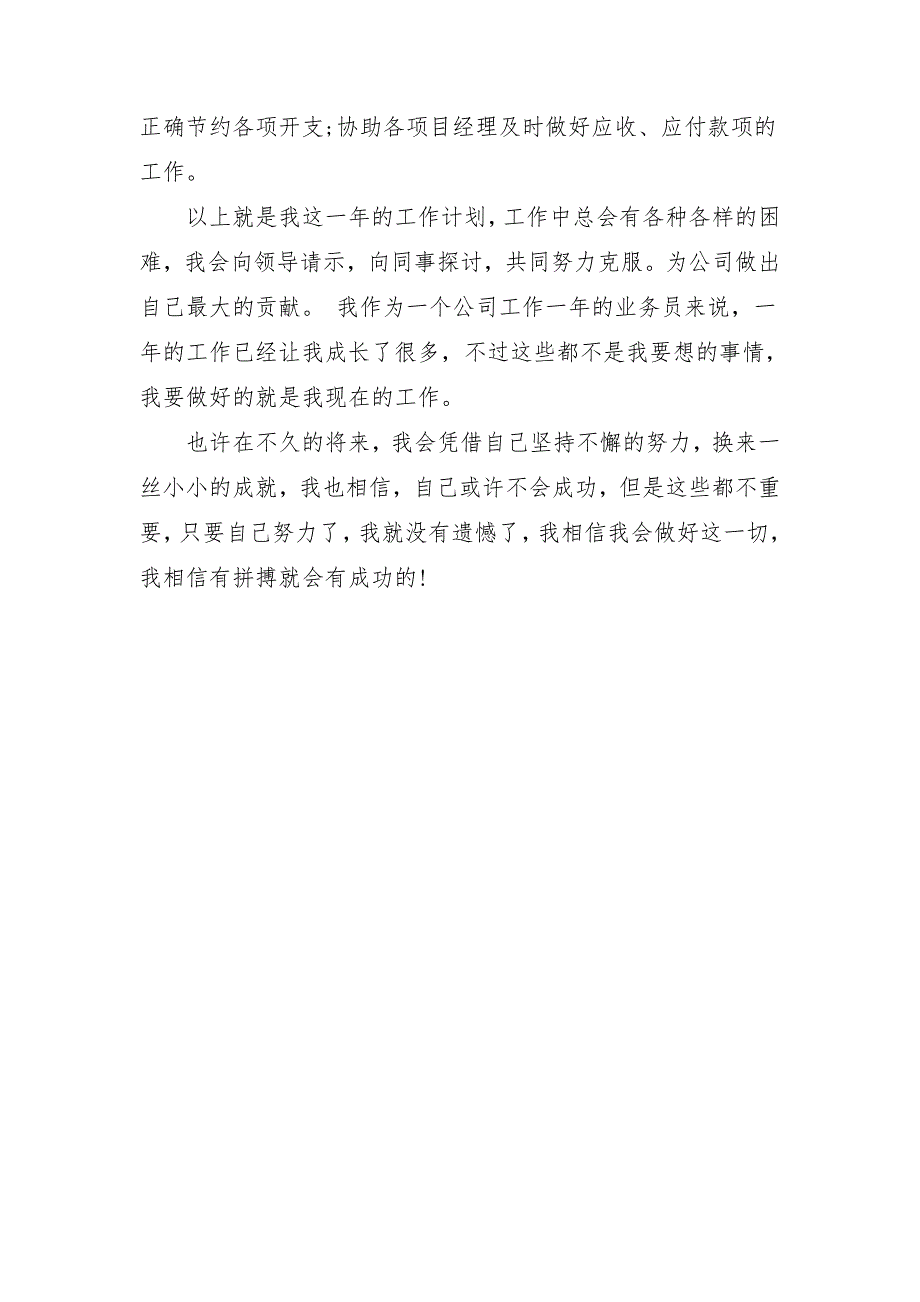 正确节约各项开支;协助各项目经理及时做好应收、应付款项的
工作。
以上就是我这一年的工作计划，工作中总会有各种各样的困
难，我会向领导请示，向同事探讨，共同努力克服。为公司做出
自己最大的贡献。 我作为一个公司工作一年的业务员来说，一
年的工作已经让我成长了很多，不过这些都不是我要想的事情，
我要做好的就是我现在的工作。
也许在不久的将来，我会凭借自己坚持不懈的努力，换来一
丝小小的成就，我也相信，自己或许不会成功，但是这些都不重
要，只要自己努力了，我就没有遗憾了，我相信我会做好这一切，
我相信有拼搏就会有成功的!